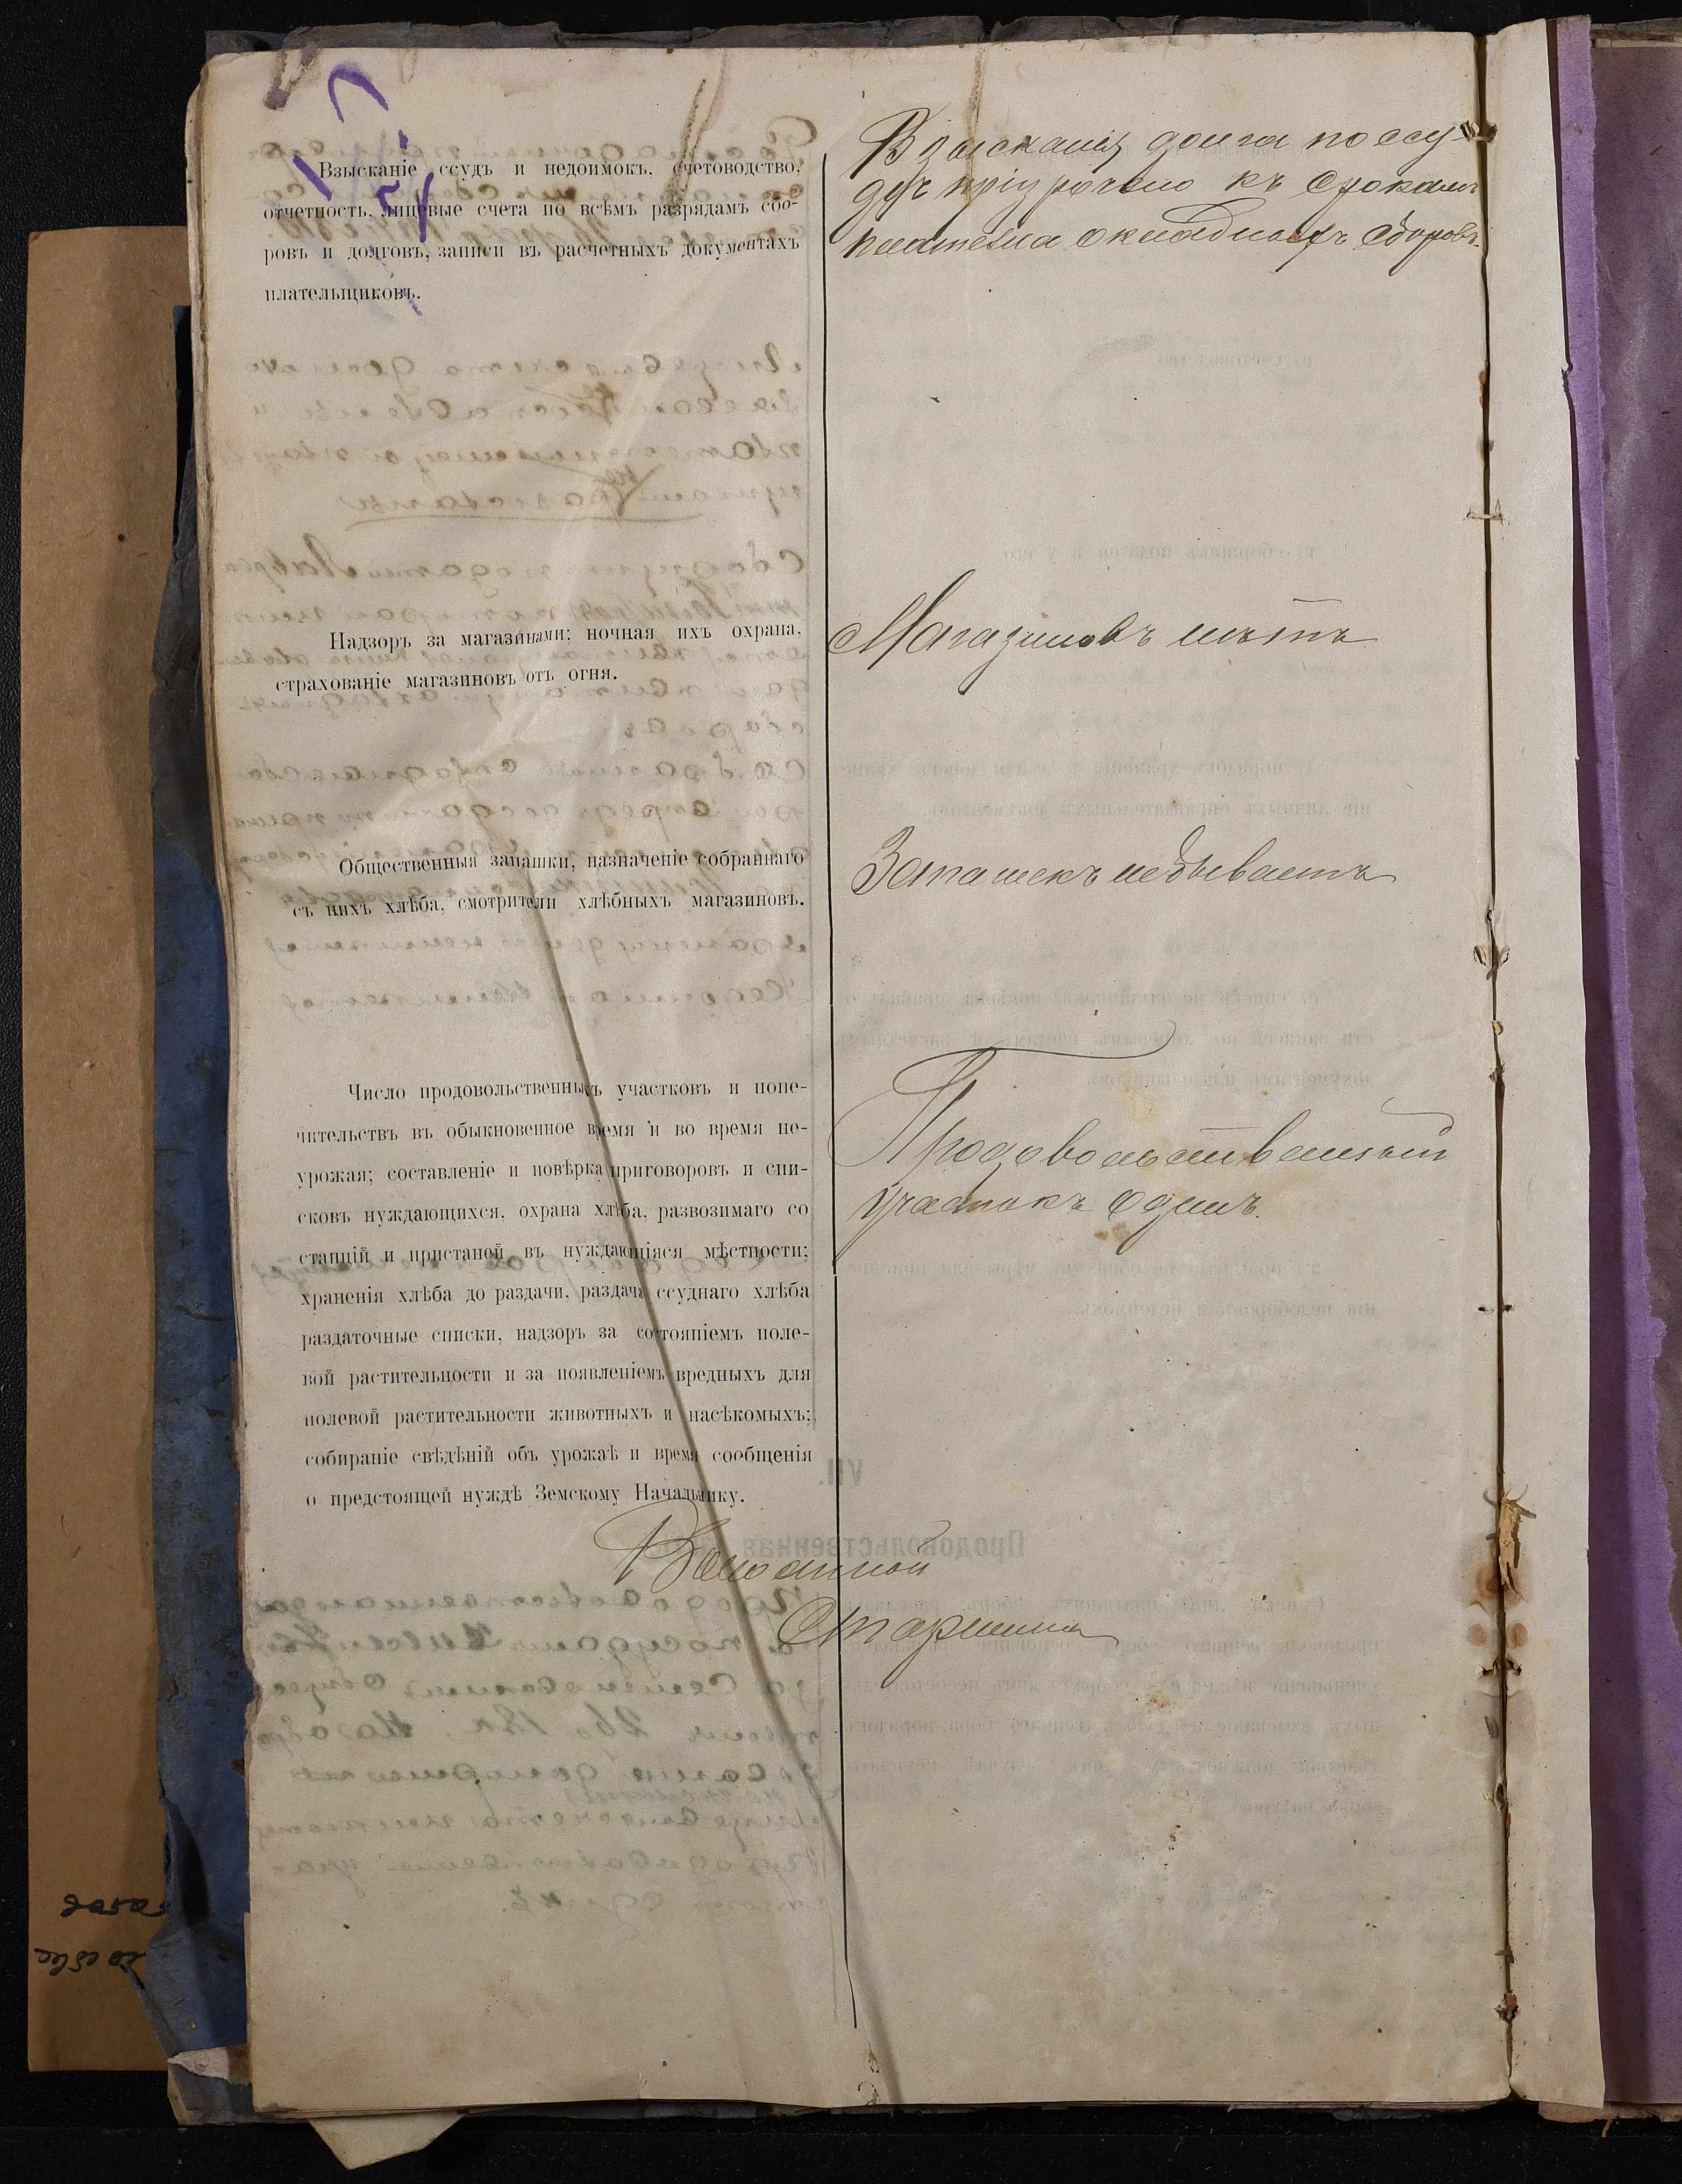 Взысканіе ссудъ и недоимокъ, счетоводство,
отчетность, лицевые счета по всѣмъ разрядамъ сбо-
ровъ и долговъ, записи въ расчетныхъ документахъ
плательщиковъ.
Взысканія долга по ссу-
дѣ пріурочено къ срокамъ
платежа окладныхъ сборовъ.
Надзоръ за магазинами; ночная ихъ охрана,
страхованіе магазиновъ отъ огня.
Магазиновъ нѣтъ
Общественныя запашки, назначеніе собраннаго
съ нихъ хлѣба, смотрители хлѣбныхъ магазиновъ.
Запашекъ небываетъ
Число продовольственныхъ участковъ и попе-
чительствъ въ обыкновенное время и во время не-
урожая; составленіе и повѣрка приговоровъ и спи-
сковъ нуждающихся, охрана хлѣба, развозимаго со
станцій и пристаней въ нуждающіяся мѣстности;
храненія хлѣба до раздачи, раздача ссуднаго хлѣба
раздаточные списки, надзоръ за состояніемъ поле-
вой растительности и за появленіемъ вредныхъ для
полевой растительности животныхъ и насѣкомыхъ;
собираніе свѣдѣній объ урожаѣ и время сообщенія
о предстоящей нуждѣ Земскому Начальнику.
Продовольственный
участокъ одинъ.
Волостной
Старшина